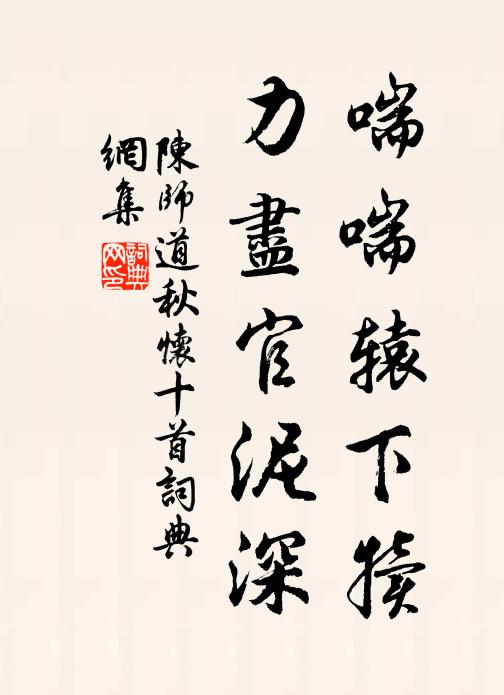 喘喘辕下犊
力盡官泥深
陳師道秋懷十首詞典
網集
詞典
网印